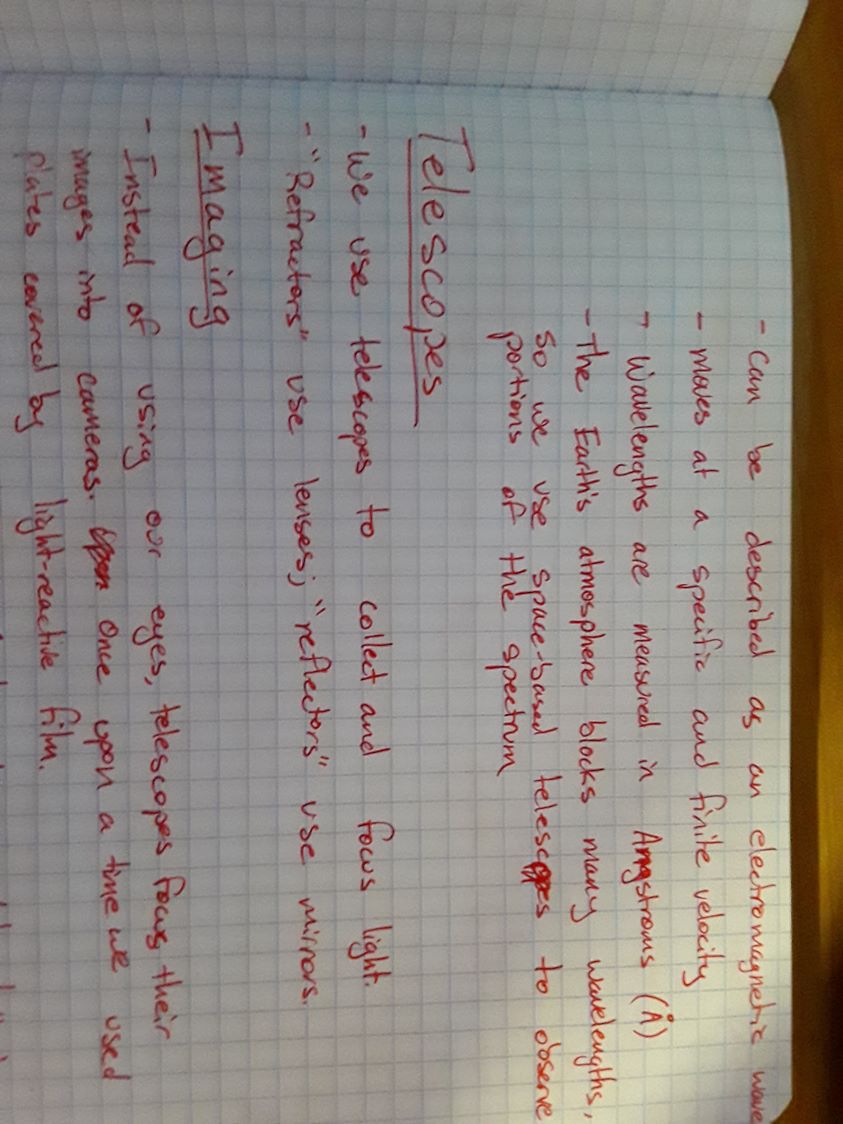 - can be described as an electromagnetic wave
- moves at a specific and finite velocity
- Wavelengths are measured in Angstroms (Å)
- the Earth's atmosphere blocks many wavelengths,
so we use space-based telescopes to observe
portions of the spectrum
Telescopes
- We use telescopes to collect and focus light.
- "Refractors" use lenses; "reflectors" use mirrors.
Imaging
- Instead of using our eyes, telescopes focus their
images into cameras. Once upon a time we used
plates covered by light-reactive film.